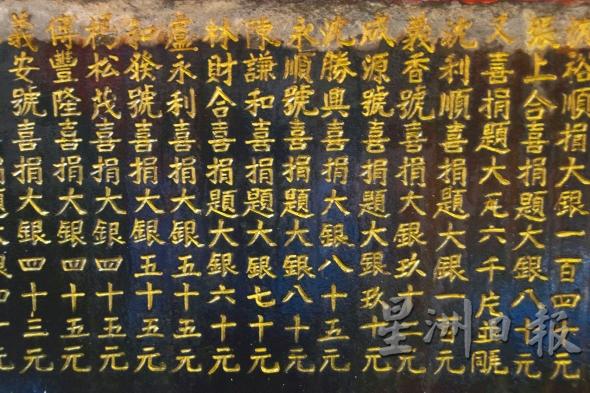 裕順捐大銀一百四元
張上合喜捐題大銀八元
喜捐題大瓦六千片並
沈利順喜捐題大銀一元
義香號喜捐題大銀玖十元
成源號喜捐題大銀玖十元
沈勝興喜捐大銀八十五元
永順號喜捐題大銀八十元
陳謙和喜捐題大銀七十元
林財合喜捐題大銀六十元
盧永利喜捐大銀五十五元
和發號喜捐大銀五十五元
楊松茂喜捐大銀四十五元
傅豐隆喜捐大銀四十五元
義安號喜捐大銀四十三元
星洲日報